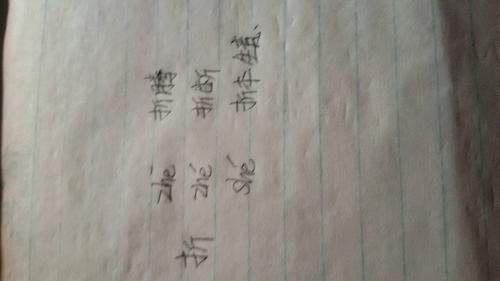 zhē 折腾
折 zhé 折断
shé 折本生意、